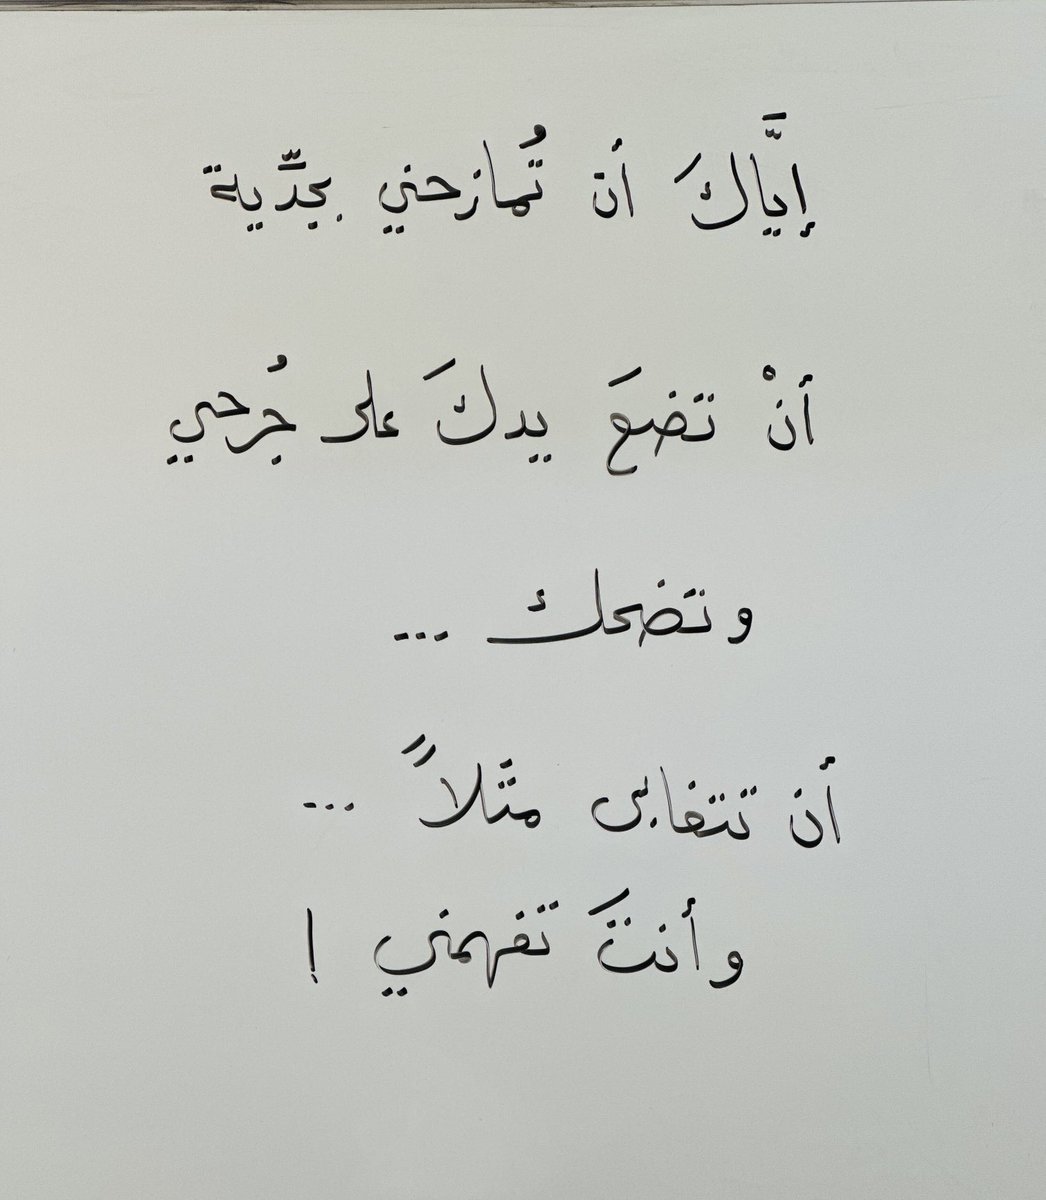 إيَّاكَ أن تُمازحني بجدِّية
أنْ تضعَ يدكَ على جُرحي
وتضحك ...
أن تتغابى مثَلاً ...
وأنتَ تفهمني !